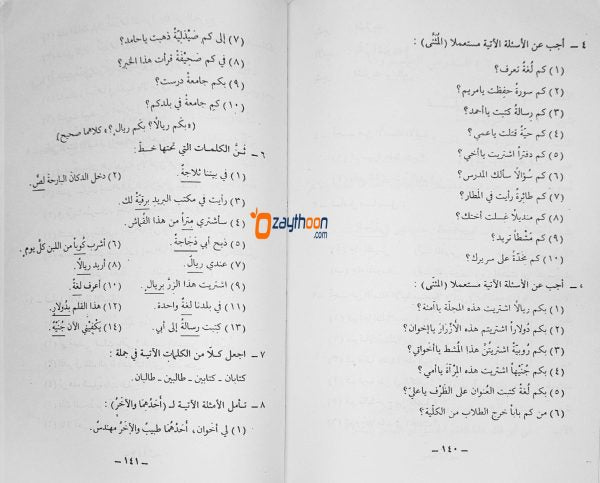 ٤ ــ أجب عن الأسئلة الآتية مستعملا (المُثَنَّى) :
(١) كم لُغَةً تعرف؟
(٢) كم سورةً حفِظتِ يامريم؟
(٣) كم رسالةً كتبت ياأحمد؟
(٤) كم حيّةً قتلت ياعمي؟
(٥) كم دفتراً اشتريت ياأخي؟
(٦) كم سُؤالاً سألك المدرس؟
(٧) كم طائِرةً رأيت في المطار؟
(٨) كم منديلاً غسلت أختك؟
(٩) كم مُشْطاً تريد؟
(١٠) كم مِخَدّةً على سريرك؟
ــ أجب عن الأسئلة الآتية مستعملا (المثنّى) :
(١) بكم ريالاً اشتريت هذه المجلّة ياآمنة؟
(٢) بكم دُولاراً اشتريتم هذه الأَزْرَارَ ياإخوان؟
(٣) بكم رُوبِيّةً اشتريتُنَّ هذا المُشط ياأخواتي؟
(٤) بكم جُنَيْهاً اشتريت هذه المِرْآة ياأمي؟
(٥) بكم لُغَةً كتبت العُنوان على الظَّرْف ياعليّ؟
(٦) من كم باباً خرج الطلاب من الكليّة؟
ــ ١٤٠ ــ
(٧) إلى كم صَيْدَلِيّةً ذهبت ياحامد؟
(٨) في كم صَحِيْفَةً قرأت هذا الخبر؟
(٩) بكم جامعةً درست؟
(١٠) كم جامعةً في بلدكم؟
(«بكم ريالاً؟ بكم ريالٍ؟» كلاهما صحيح)
٦ ــ ثَنِّ الكلمات التي تحتها خطّ:
(١) في بيتنا ثلاجةٌ.
(٢) دخل الدكانَ البارحةَ لِصٌّ.
(٣) رأيت في مكتب البريدِ برقيّةً لك.
(٤) سأشتري متراً من هذا القُماش.
(٥) ذبح أبي دَجَاجَةً.
(٦) أشرب كُوباً من اللبن كلَّ يوم.
(٧) عندي ريالٌ.
(٨) أريد ريالاً.
(٩) اشتريت هذا الزرَّ بريالٍ.
(١٠) أعرف لغةً.
(١١) في بلدنا لغةٌ واحدة.
(١٢) هذا القلم بِدُولارٍ.
(١٣) كتبت رسالةً إلى أبي.
(١٤) يَكْفِيْنِي الآن جُنَيْهٌ.
٧ ــ اجعل كلاّ من الكلمات الآتية في جملة :
كتابان ــ كتابين ــ طالبين ــ طالبان.
٨ ــ تأمل الأمثلة الآتية لـ (أَحَدُهُمَا والآخَرُ) :
(١) لي أخوان، أَحَدُهُمَا طبيبٌ والآخَرُ مهندسٌ.
ــ ١٤١ ــ
zaythoon
.com